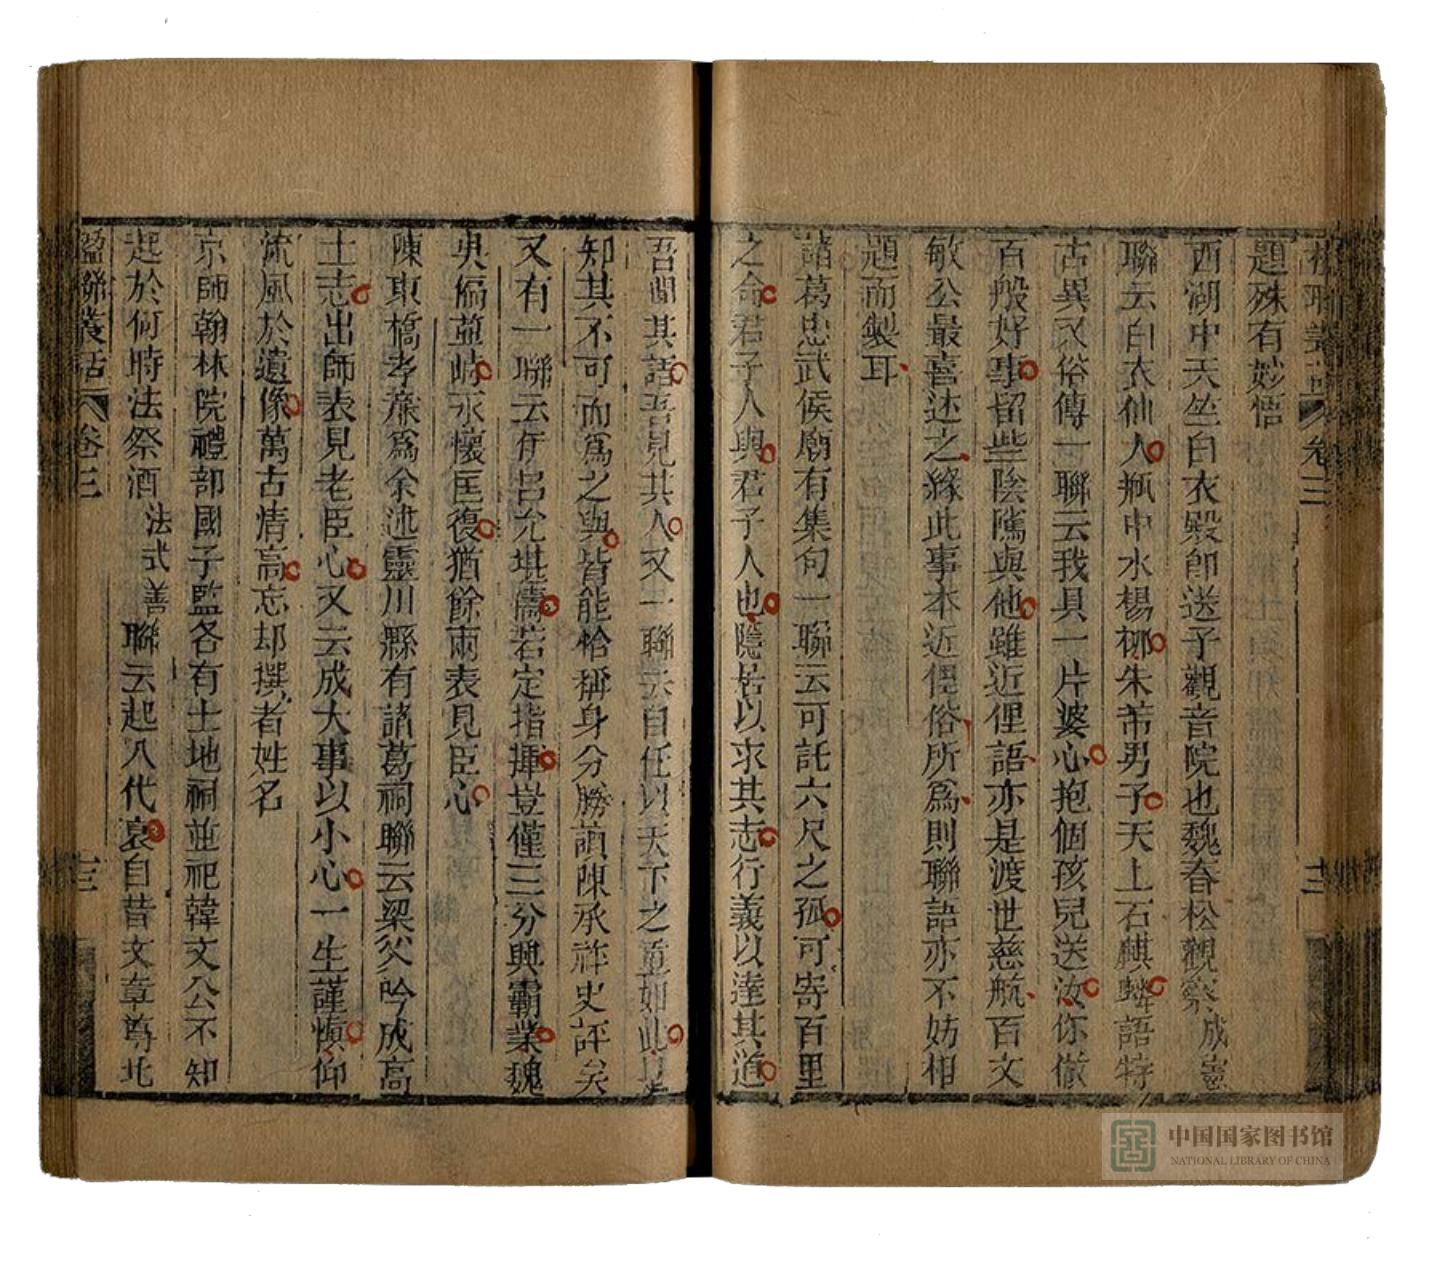 楹聯叢話 卷三 十二
題殊有妙悟
西湖中天竺白衣殿卽送子觀音院也魏春松觀察成憲
聯云白衣仙人瓶中水楊柳朱芾男子天上石麒麟語特
古異又俗傳一聯云我具一片婆心抱個孩兒送汝你做
百般好事留些陰隲與他雖近俚語亦是渡世慈航百文
敏公最喜述之緣此事本近俚俗所爲則聯語亦不妨相
題而製耳
諸葛忠武侯廟有集句一聯云可託六尺之孤可寄百里
之命君子人與君子人也隱居以求其志行義以達其道
吾聞其語吾見其人又一聯云自任以天下之重如此是
知其不可而爲之與皆能恰稱身分勝讀陳承祚史評矣
又有一聯云伊呂允堪儔若定指揮豈僅三分興霸業魏
吳偏並峙永懷匡復猶餘兩表見臣心
陳東橋孝廉爲余述靈川縣有諸葛祠聯云梁父吟成高
士志出師表見老臣心又云成大事以小心一生謹愼仰
流風於遺像萬古情高忘却撰者姓名
京師翰林院禮部國子監各有土地祠並祀韓文公不知
起於何時法祭酒法式善聯云起八代衰自昔文章尊北
楹聯叢話 卷三 十三
中国国家图书馆
NATIONAL LIBRARY OF CHINA